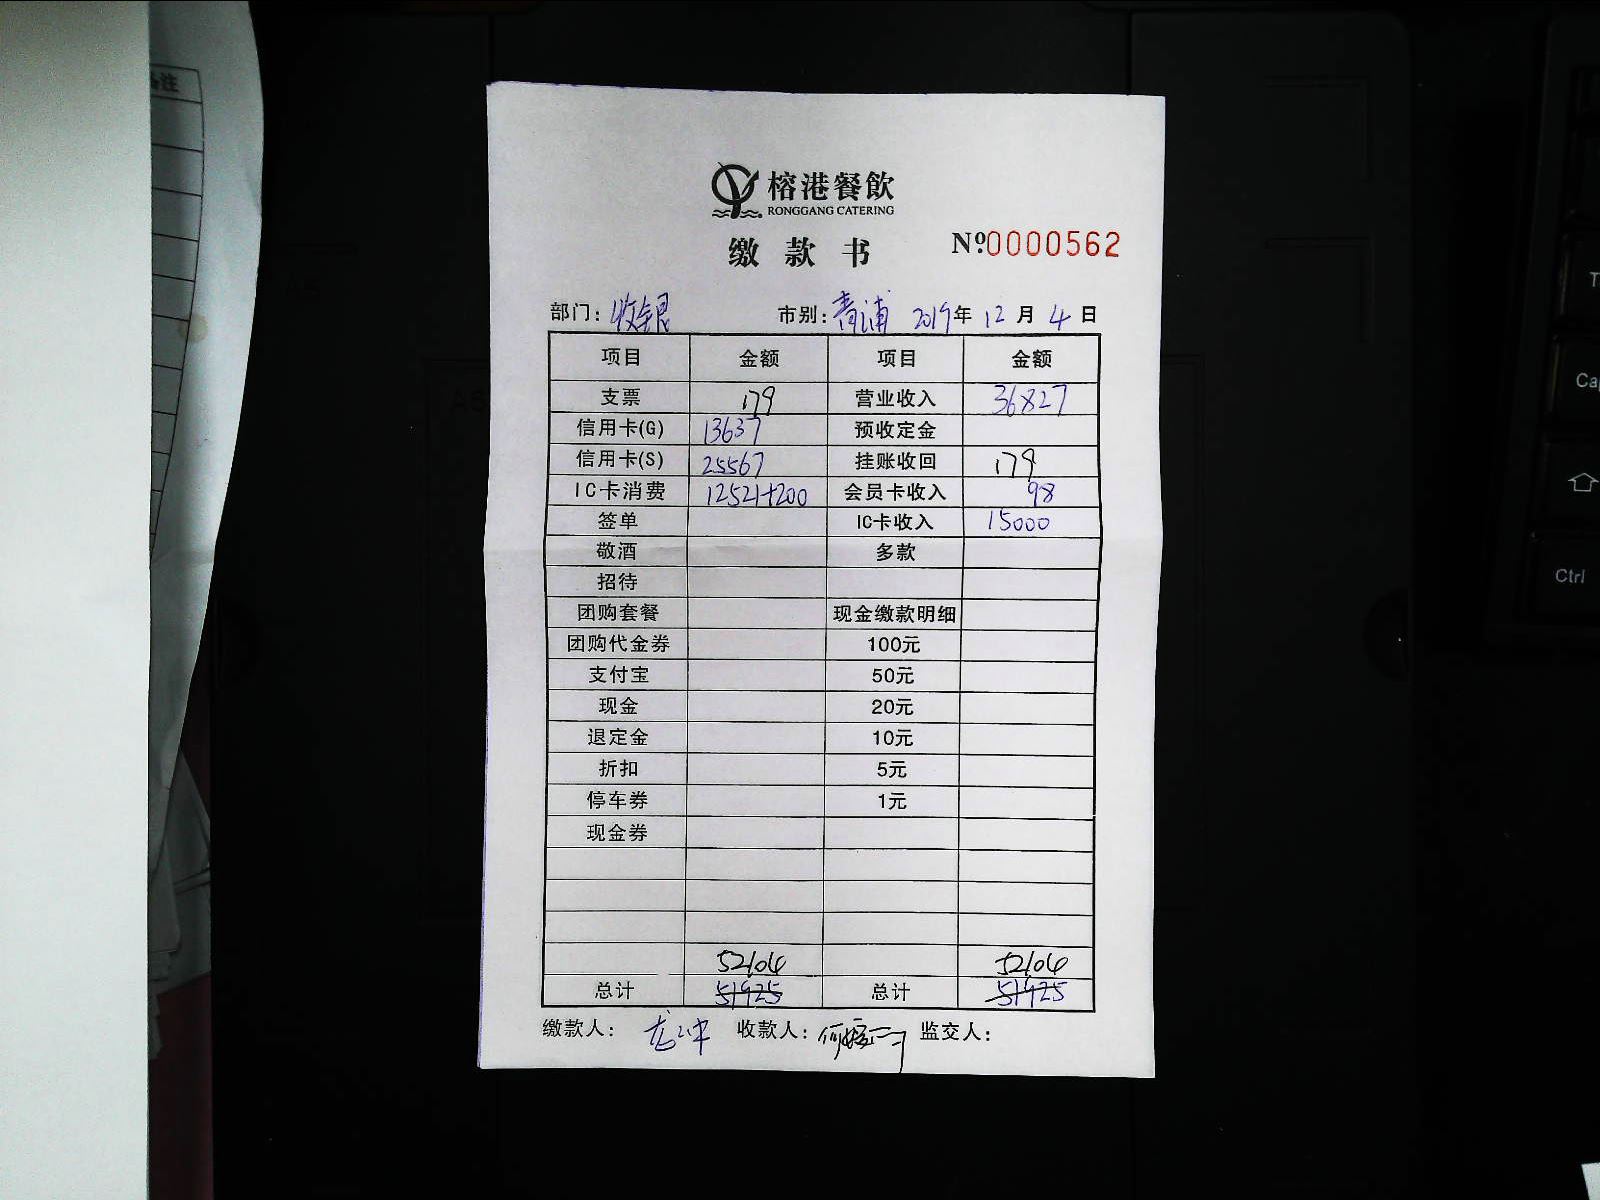 备注
榕港餐飲
RONGGANG CATERING
缴款书 №0000562
部门:收银 市别:青浦 2019年12月4日
项目 金额 项目 金额
支票 179 营业收入 36827
信用卡(G) 13637 预收定金
信用卡(S) 25567 挂账收回 179
IC卡消费 12521+200 会员卡收入 98
签单 IC卡收入 15000
敬酒 多款
招待
团购套餐 现金缴款明细
团购代金券 100元
支付宝 50元
现金 20元
退定金 10元
折扣 5元
停车券 1元
现金券
52104 52104
总计 51925 总计 51925
缴款人: 收款人: 监交人:
A5
A6
Ctrl